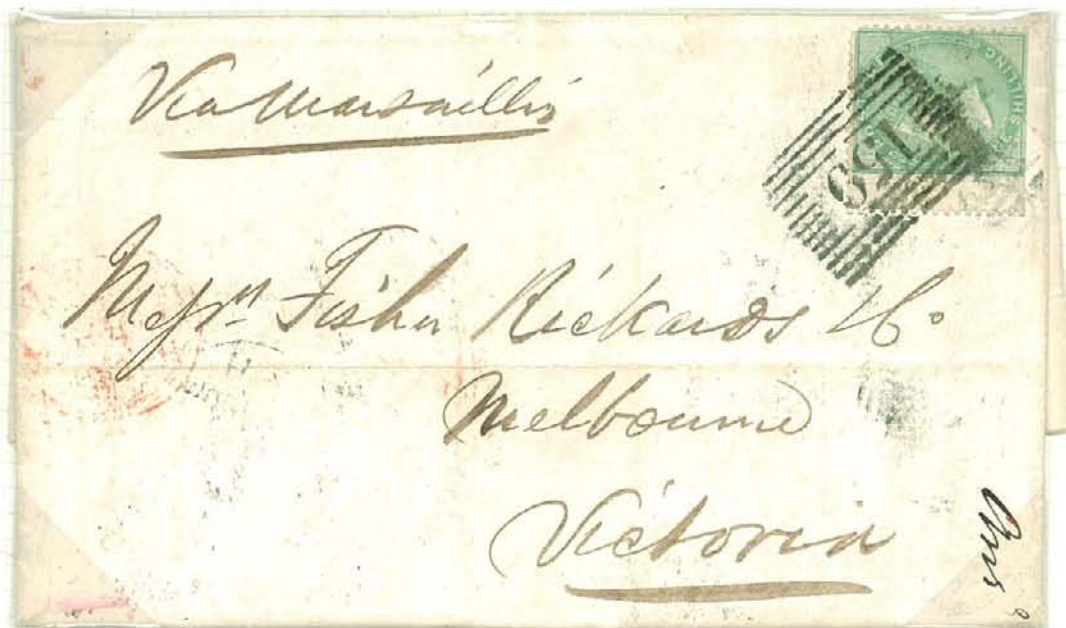 Via Marsailles
Messrs Fisher Rickards & Co
Melbourne
Victoria
SHILLING